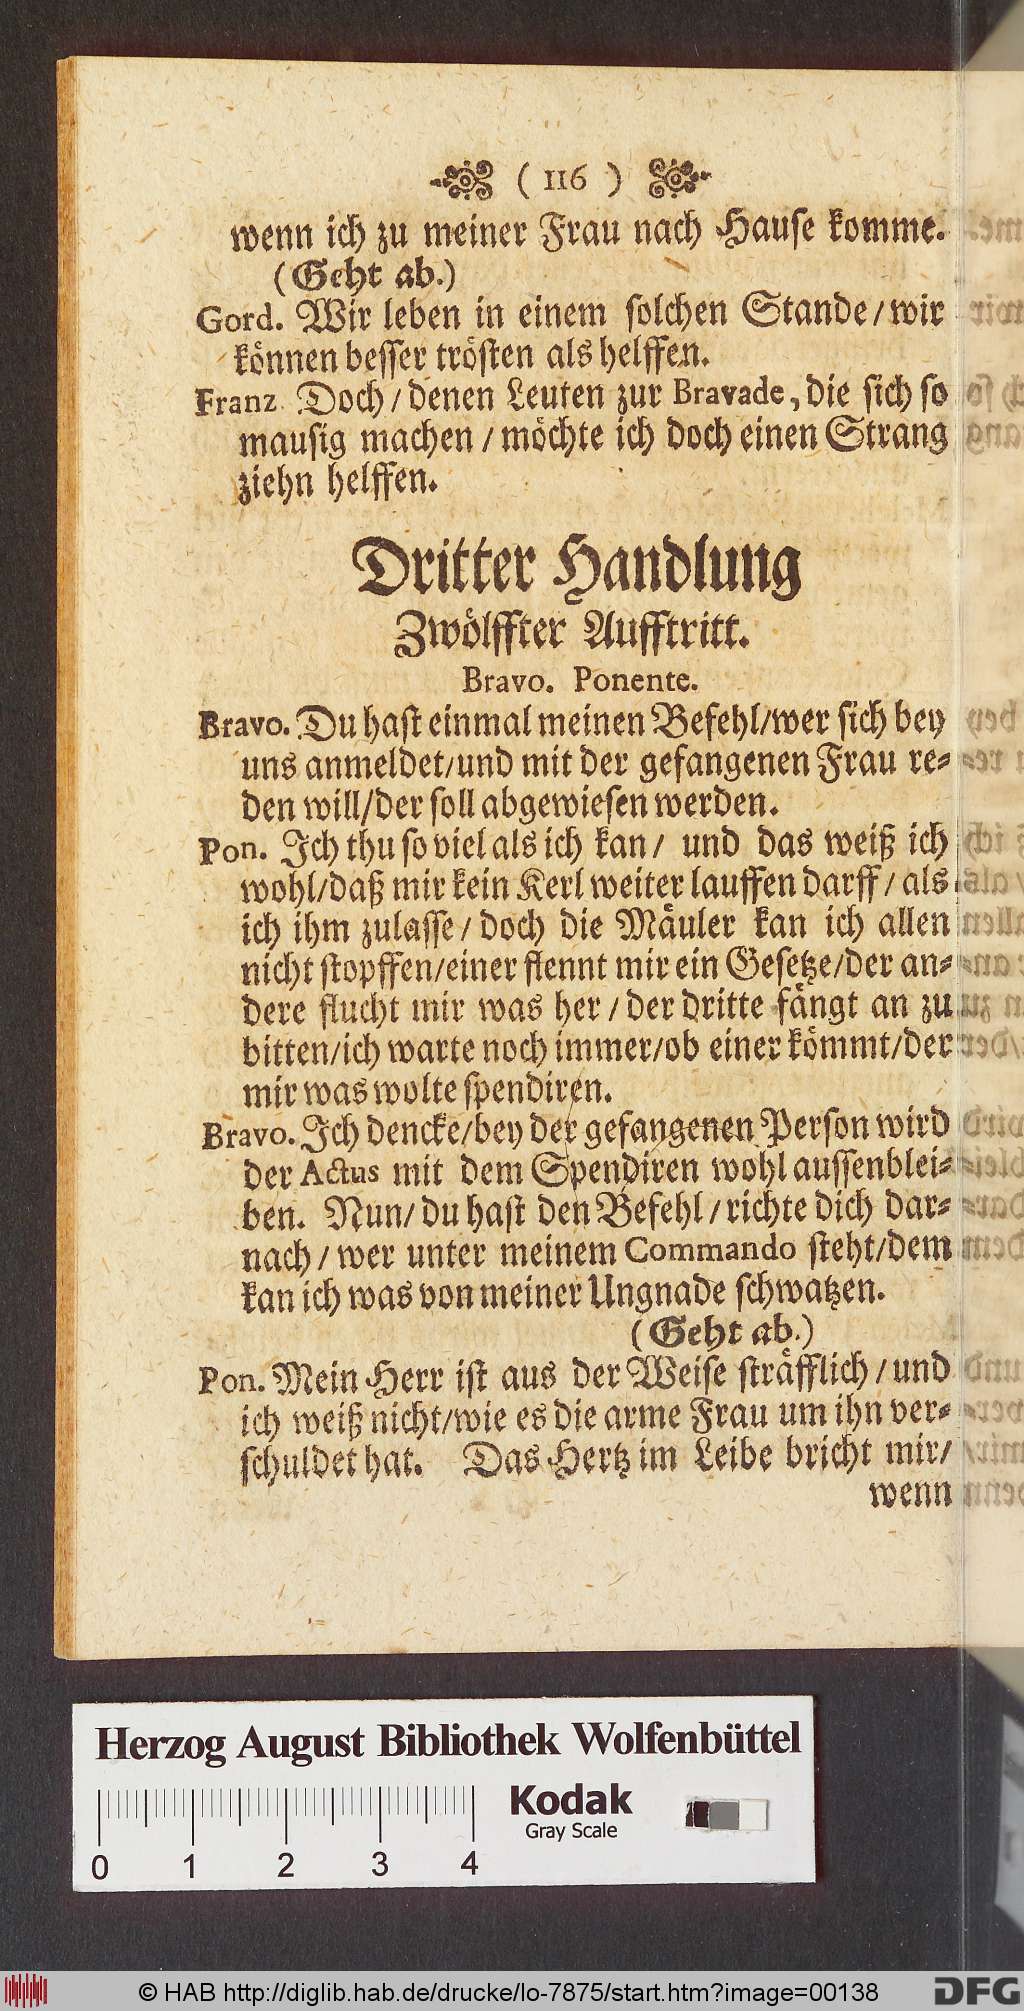 ( 116 )
wenn ich zu meiner Frau nach Hause komme.
(Geht ab.)
Gord. Wir leben in einem solchen Stande/ wir
können besser trösten als helffen.
Franz. Doch/ denen Leuten zur Bravade, die sich so
mausig machen/ möchte ich doch einen Strang
ziehn helffen.
Dritter Handlung
Zwölffter Aufftritt.
Bravo. Ponente.
Bravo. Du hast einmal meinen Befehl/wer sich bey
uns anmeldet/und mit der gefangenen Frau re-
den will/der soll abgewiesen werden.
Pon. Ich thu so viel als ich kan/ und das weiß ich
wohl/daß mir kein Kerl weiter lauffen darff/ als
ich ihm zulasse/ doch die Mäuler kan ich allen
nicht stopffen/einer flennt mir ein Gesetze/der an-
dere flucht mir was her/ der dritte fängt an zu
bitten/ich warte noch immer/ob einer kömmt/der
mir was wolte spendiren.
Bravo. Ich dencke/bey der gefangenen Person wird
der Actus mit dem Spendiren wohl aussenblei-
ben. Nun/ du hast den Befehl/ richte dich dar-
nach/ wer unter meinem Commando steht/dem
kan ich was von meiner Ungnade schwatzen.
(Geht ab.)
Pon. Mein Herr ist aus der Weise sträfflich/ und
ich weiß nicht/wie es die arme Frau um ihn ver-
schuldet hat. Das Hertz im Leibe bricht mir/
wenn
Herzog August Bibliothek Wolfenbüttel
Kodak
Gray Scale
0 1 2 3 4
© HAB http://diglib.hab.de/drucke/lo-7875/start.htm?image=00138
DFG